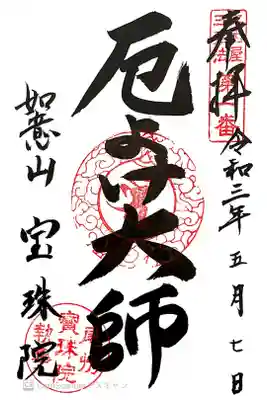 奉拝
令和三年五月七日
厄よけ大師
如意山 宝珠院
寶珠院